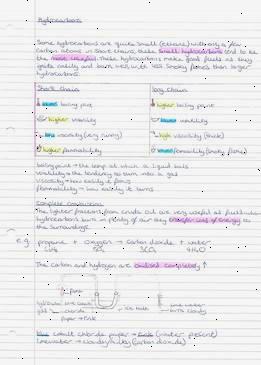 Hydrocarbons
Some hydrocarbons are quite small (ethane) with only a few
carbon atoms in short chains, these small hydrocarbons tend to be
the most useful. These hydrocarbons make good fuels as they
ignite easily and burn well, with less smoky flames than larger
hydrocarbons.
Short Chain
long chain
lower boiling point
higher boiling point
higher volatility
lower volatility
low viscosity (very runny)
high viscosity (thick)
higher flammability
lower flammability (smoky flames)
boiling point → the temp at which a liquid boils
volatility → the tendency to turn into a gas
viscosity → how easily it flows
flammability → how easily it burns
Complete combustion
The lighter fractions from crude oil are very useful as fuels when
hydrocarbons burn in plenty of air they transfer lots of energy to
the surroundings.
e.g propane + oxygen → carbon dioxide + water
5O₂ 3CO₂ 4H₂O
The carbon and hydrogen are oxidised completely ↑
→ pump
chloride
ice bath
lime water
turns cloudy
paper → pink
blue cobalt chloride paper → pink (water present)
limewater → cloudy/milky (carbon dioxide)